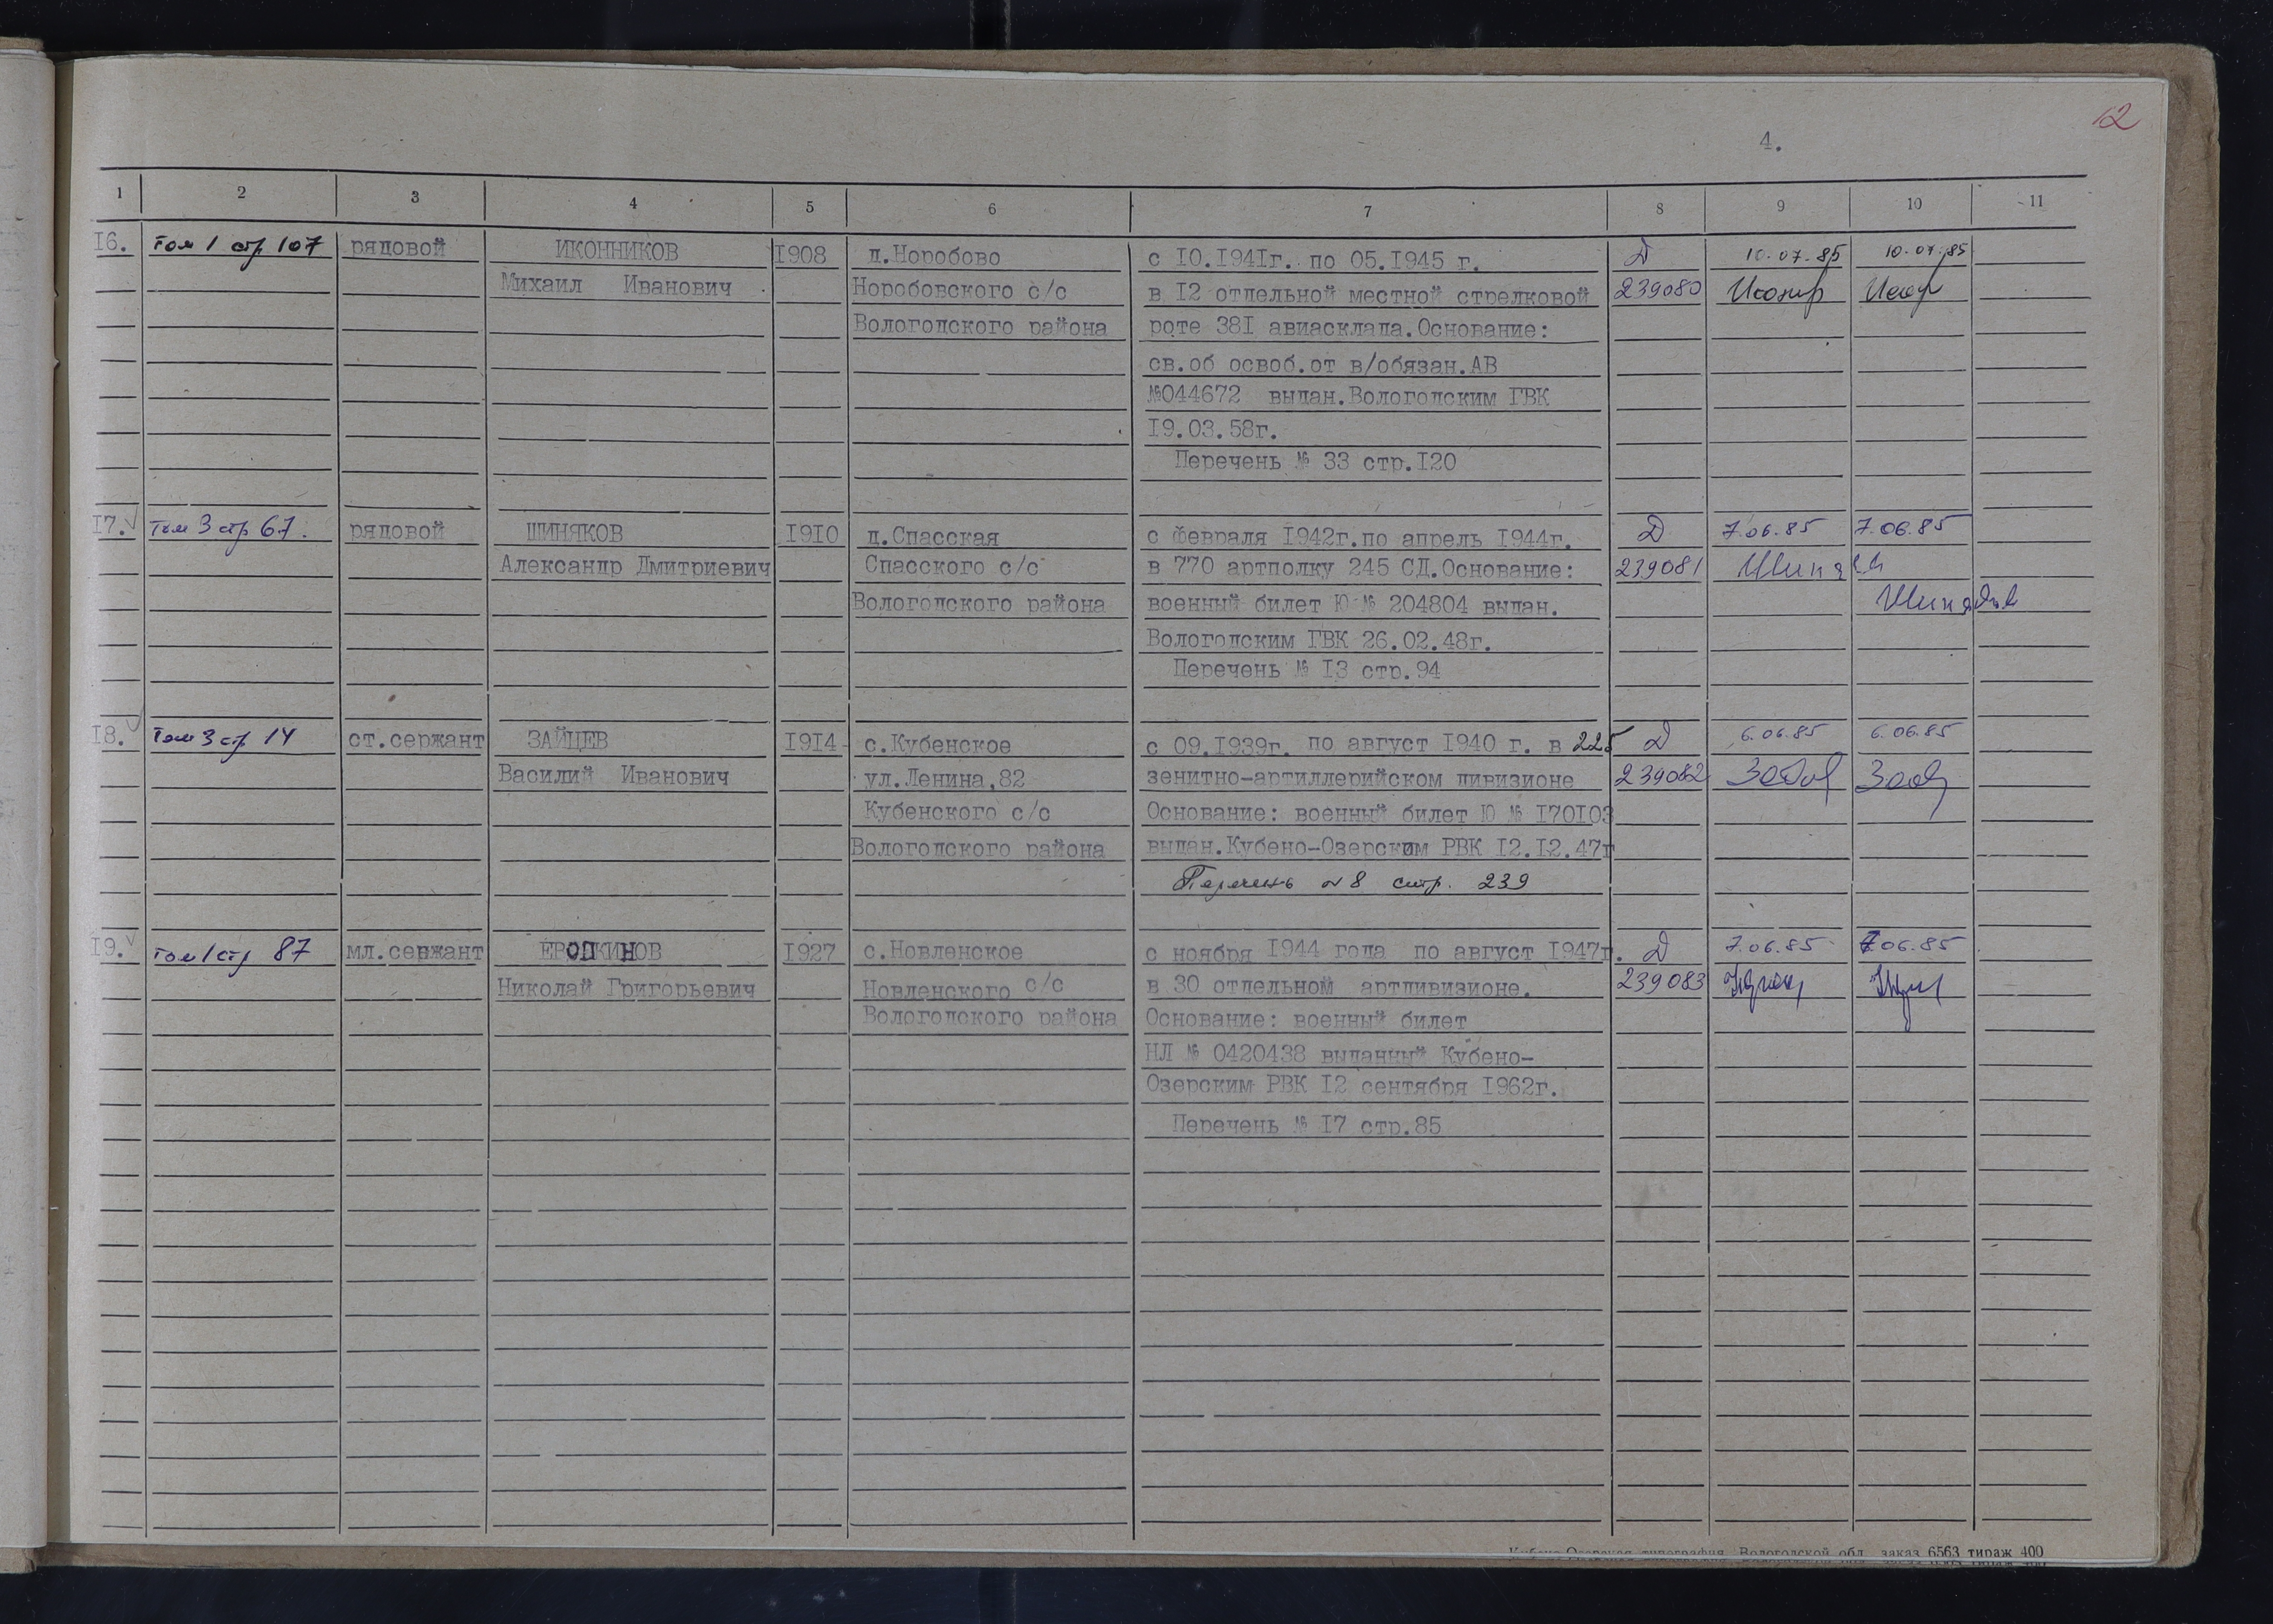 12
4.
1 2 3 4 5 6 7 8 9 10 11
16. том 1 стр 107 рядовой ИКОННИКОВ 1908 д.Норобово с 10.1941г. по 05.1945 г. Д 10.07.85 10.07.85
Михаил Иванович Норобовского с/с в 12 отдельной местной стрелковой 239080
Вологодского района роте 381 авиасклада.Основание:
св.об освоб.от в/обязан.АВ
№044672 выдан.Вологодским ГВК
19.03.58г.
Перечень № 33 стр.120
17. том 3 стр 67. рядовой ШИНЯКОВ 1910 д.Спасская с февраля 1942г.по апрель 1944г. Д 7.06.85 7.06.85
Александр Дмитриевич Спасского с/с в 770 артполку 245 СД.Основание: 239081
Вологодского района военный билет Ю № 204804 выдан.
Вологодским ГВК 26.02.48г.
Перечень № 13 стр.94
18. том 3 стр 14 ст.сержант ЗАЙЦЕВ 1914 с.Кубенское с 09.1939г. по август 1940 г. в 225 Д 6.06.85 6.06.85
Василий Иванович ул.Ленина,82 зенитно-артиллерийском дивизионе 239082
Кубенского с/с Основание: военный билет Ю № 170103
Вологодского района выдан.Кубено-Озерским РВК 12.12.47г
Перечень № 8 стр. 239
19. том 1 стр 87 мл.сержант ЕРОПКИНОВ 1927 с.Новленское с ноября 1944 года по август 1947г. Д 7.06.85 7.06.85
Николай Григорьевич Новленского с/с в 30 отдельном артдивизионе. 239083
Вологодского района Основание: военный билет
НЛ № 0420438 выданный Кубено-
Озерским РВК 12 сентября 1962г.
Перечень № 17 стр.85
Кубено-Озерская типография Вологодской обл. заказ 6563 тираж 400